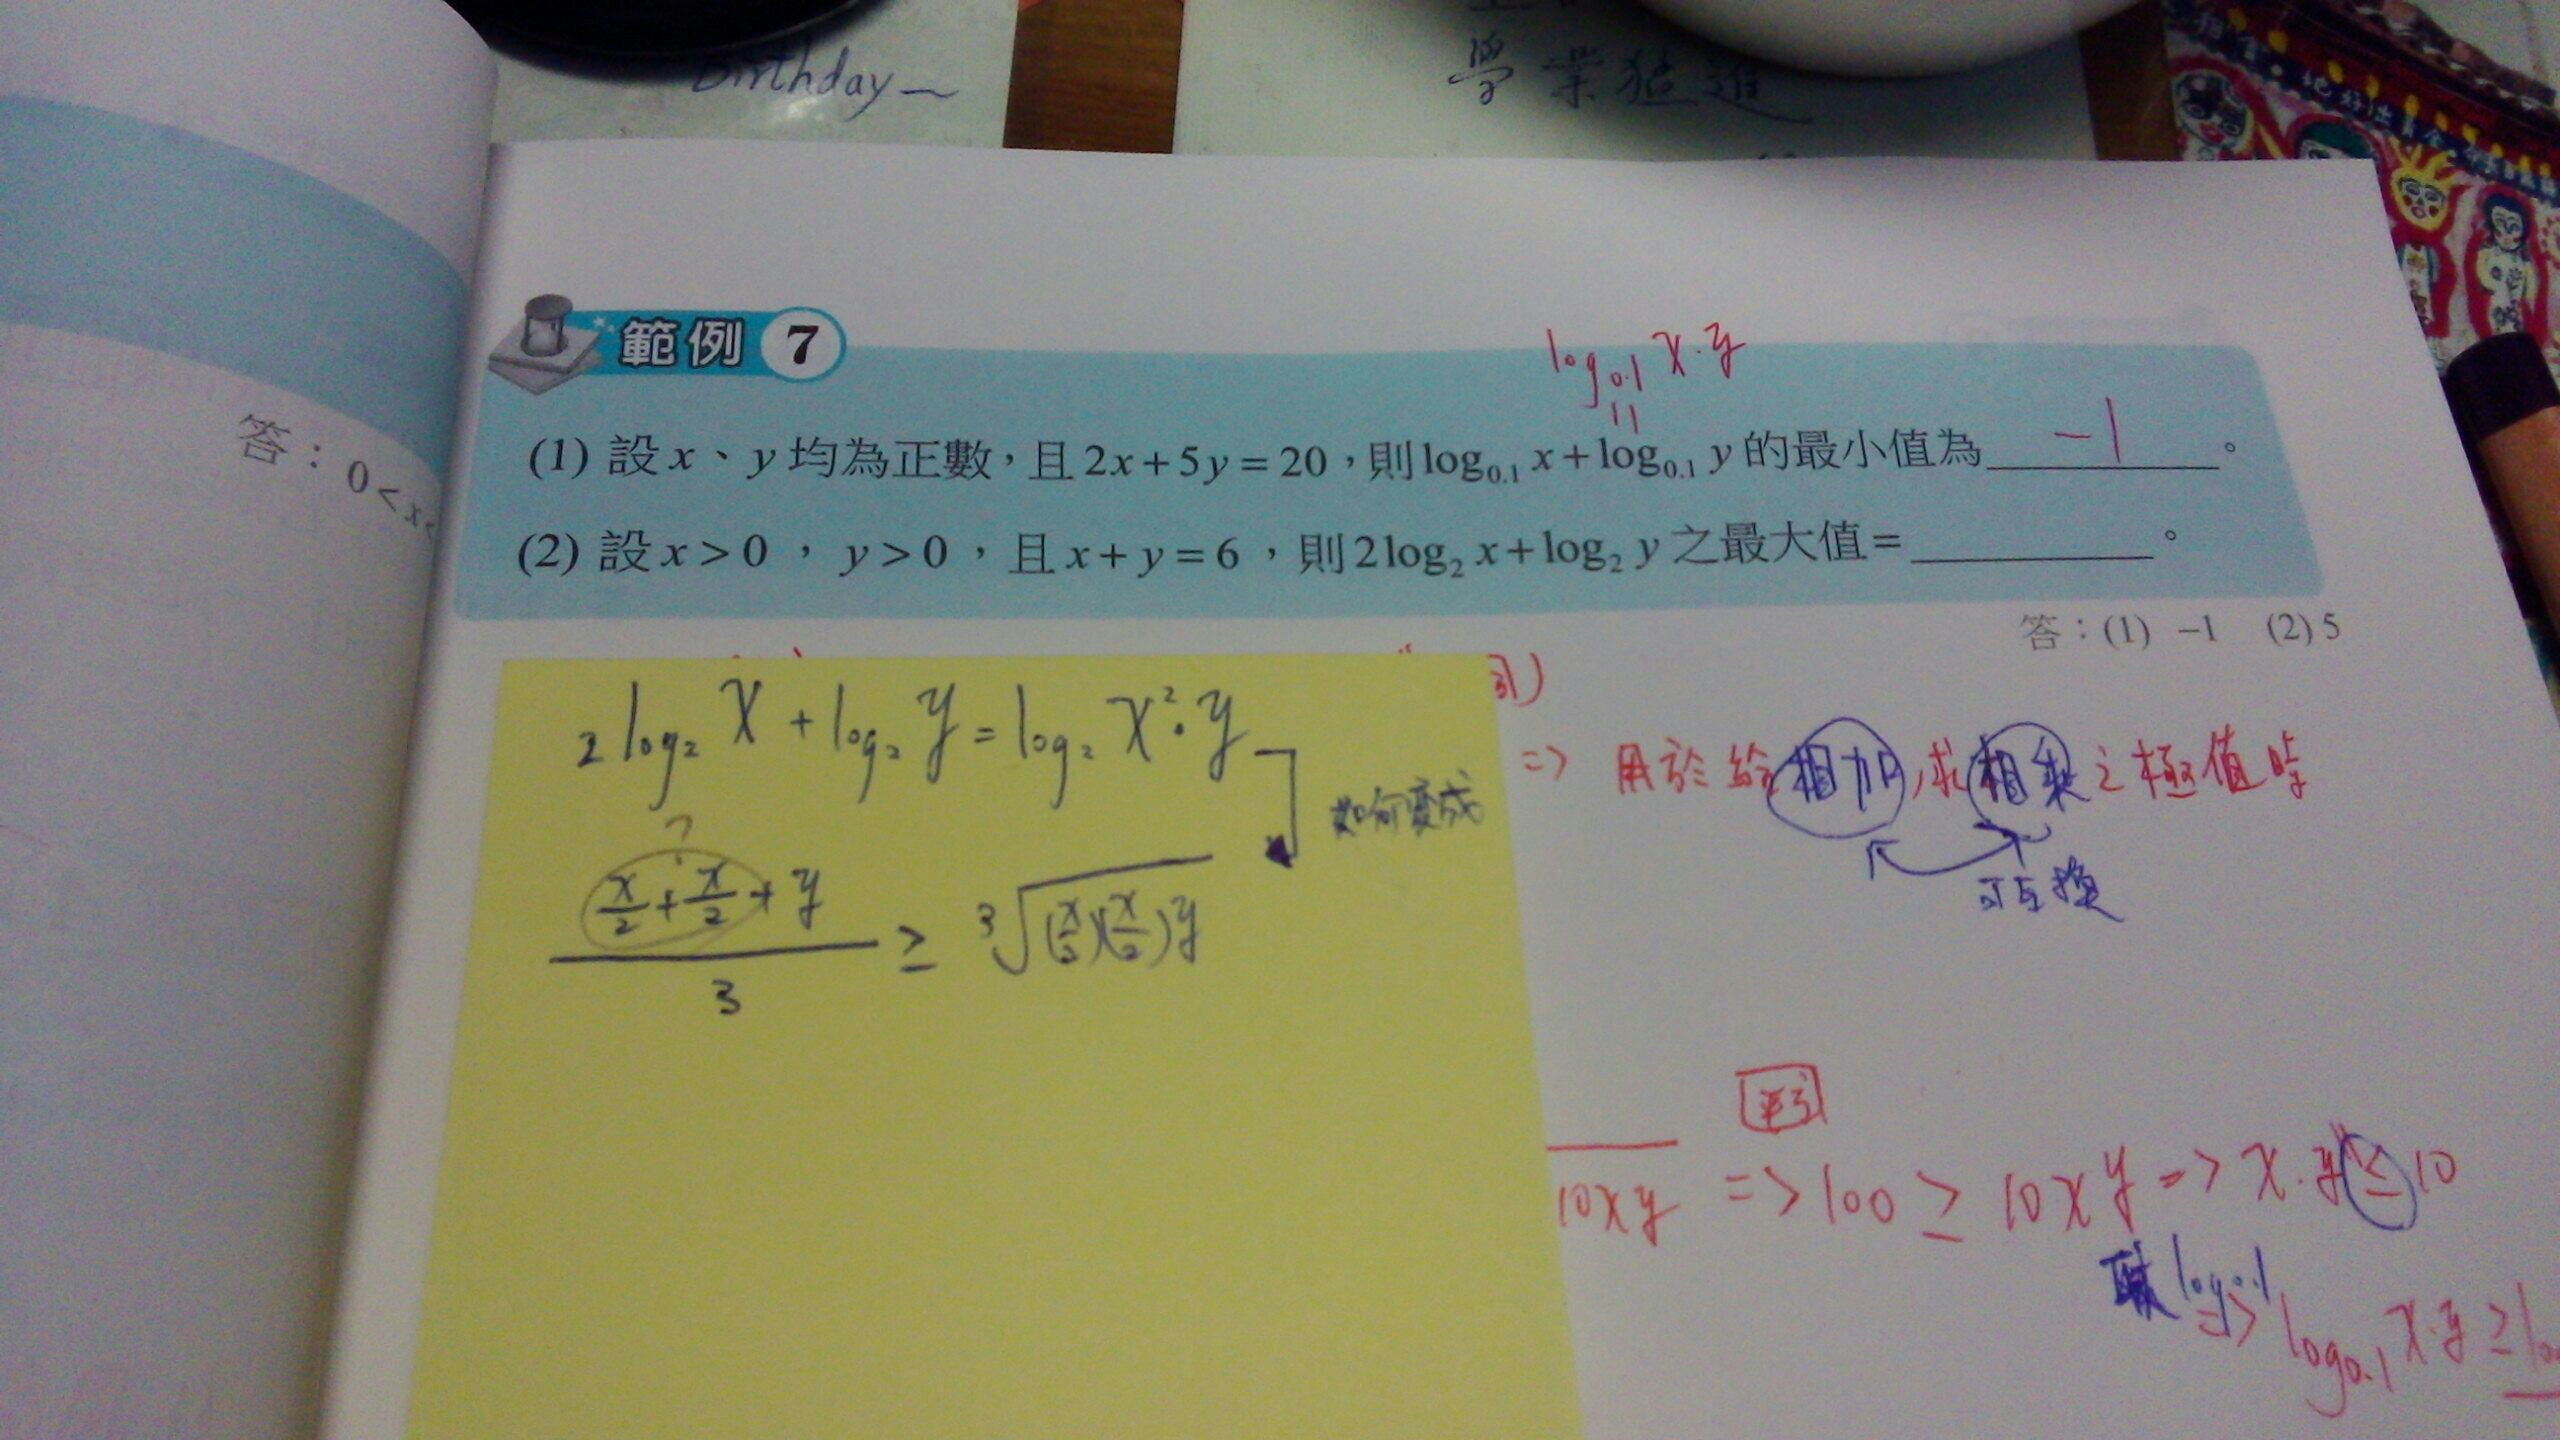 Birthday~
學業猛進
答：0<x<
範例 7
log₀.₁ x·y
||
(1) 設 x、y 均為正數，且 2x+5y=20，則 log₀.₁ x+log₀.₁ y 的最小值為 -1 。
(2) 設 x>0，y>0，且 x+y=6，則 2log₂ x+log₂ y 之最大值=＿＿＿。
答：(1) −1 (2) 5
2log₂ x + log₂ y = log₂ x²·y
如何變成
?
(x/2 + x/2 + y)/3 ≥ ³√((x/2)(x/2)y)
=> 用於給相加,求相乘之極值時
可互換
10xy => 100 ≥ 10xy => x·y ≤ 10
取 log₀.₁
=> log₀.₁ x·y ≥